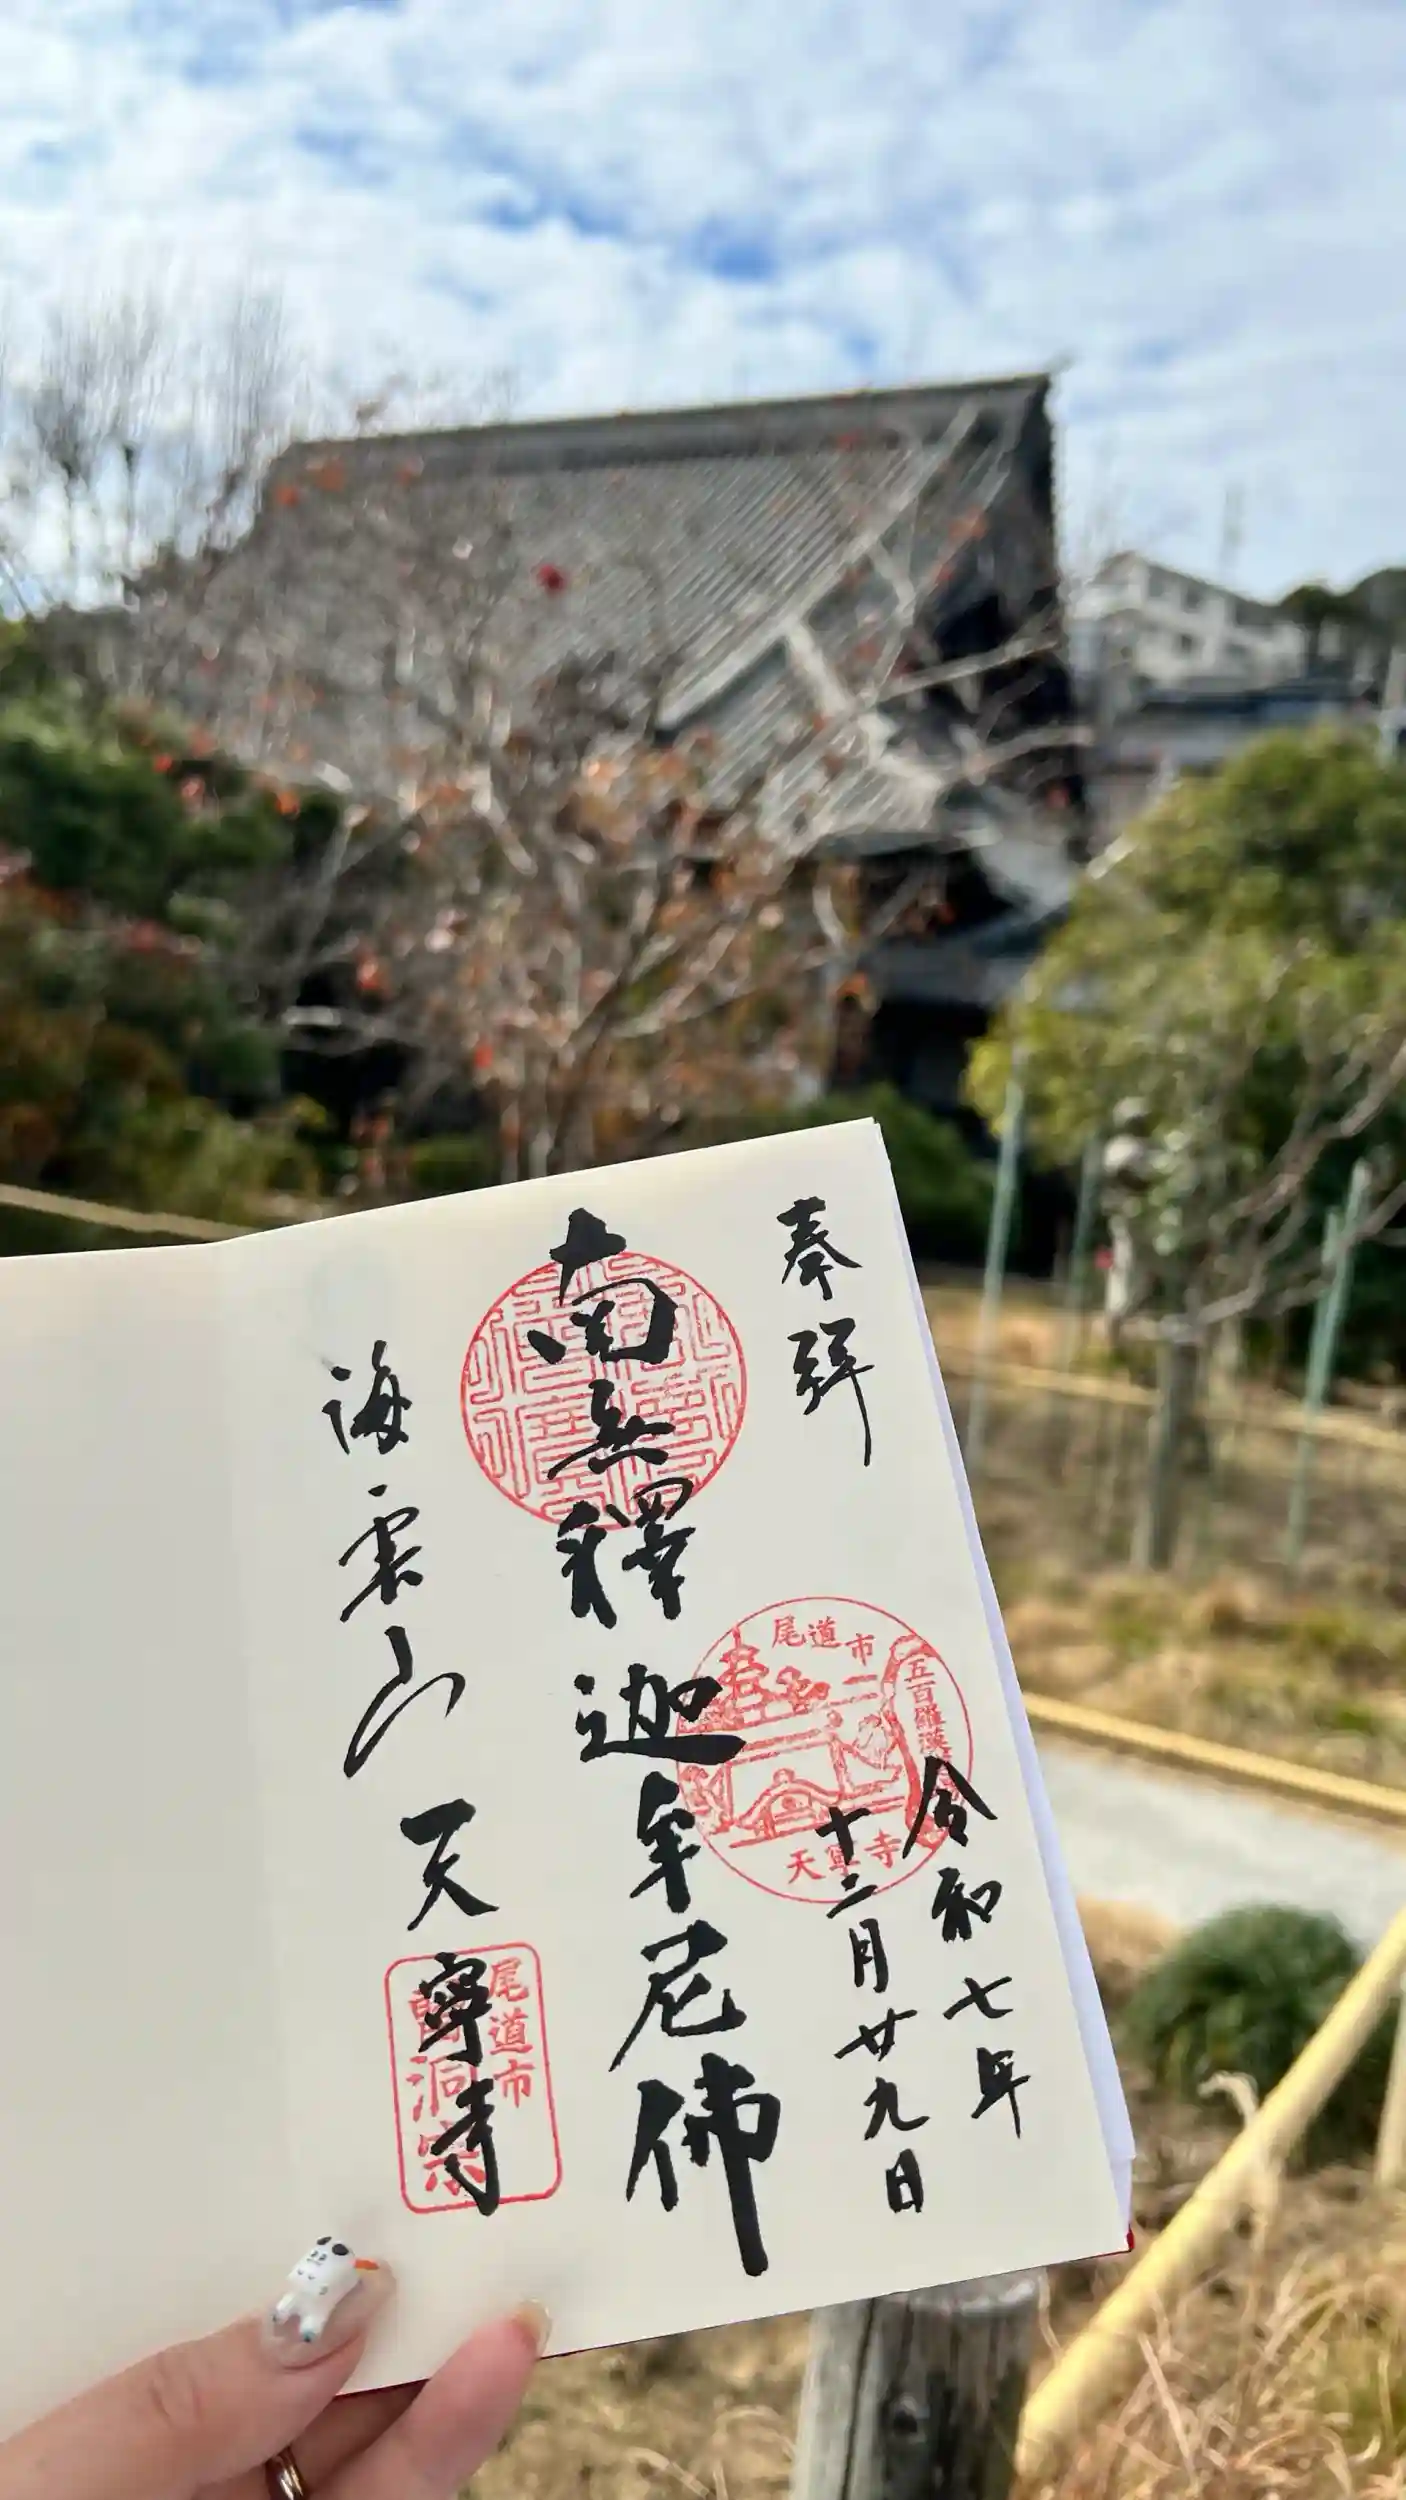 奉拝
令和七年
十二月廿九日
尾道市
五百羅漢
天寧寺
南無釋迦牟尼佛
海雲山天寧寺
尾道市
曹洞宗